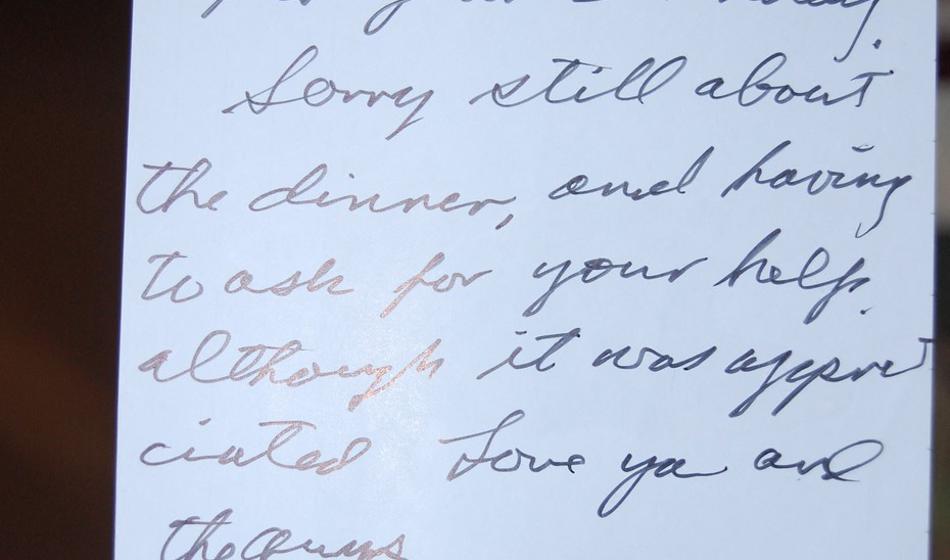 Sorry still about
the dinner, and having
to ask for your help.
although it was appre
ciated Love ya and
the Guys